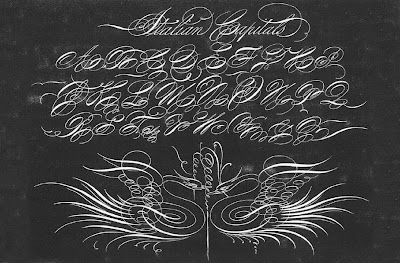 Italian Capitals
A B C D E F G H I
J K L M N O P Q
R S T U V W X Y Z